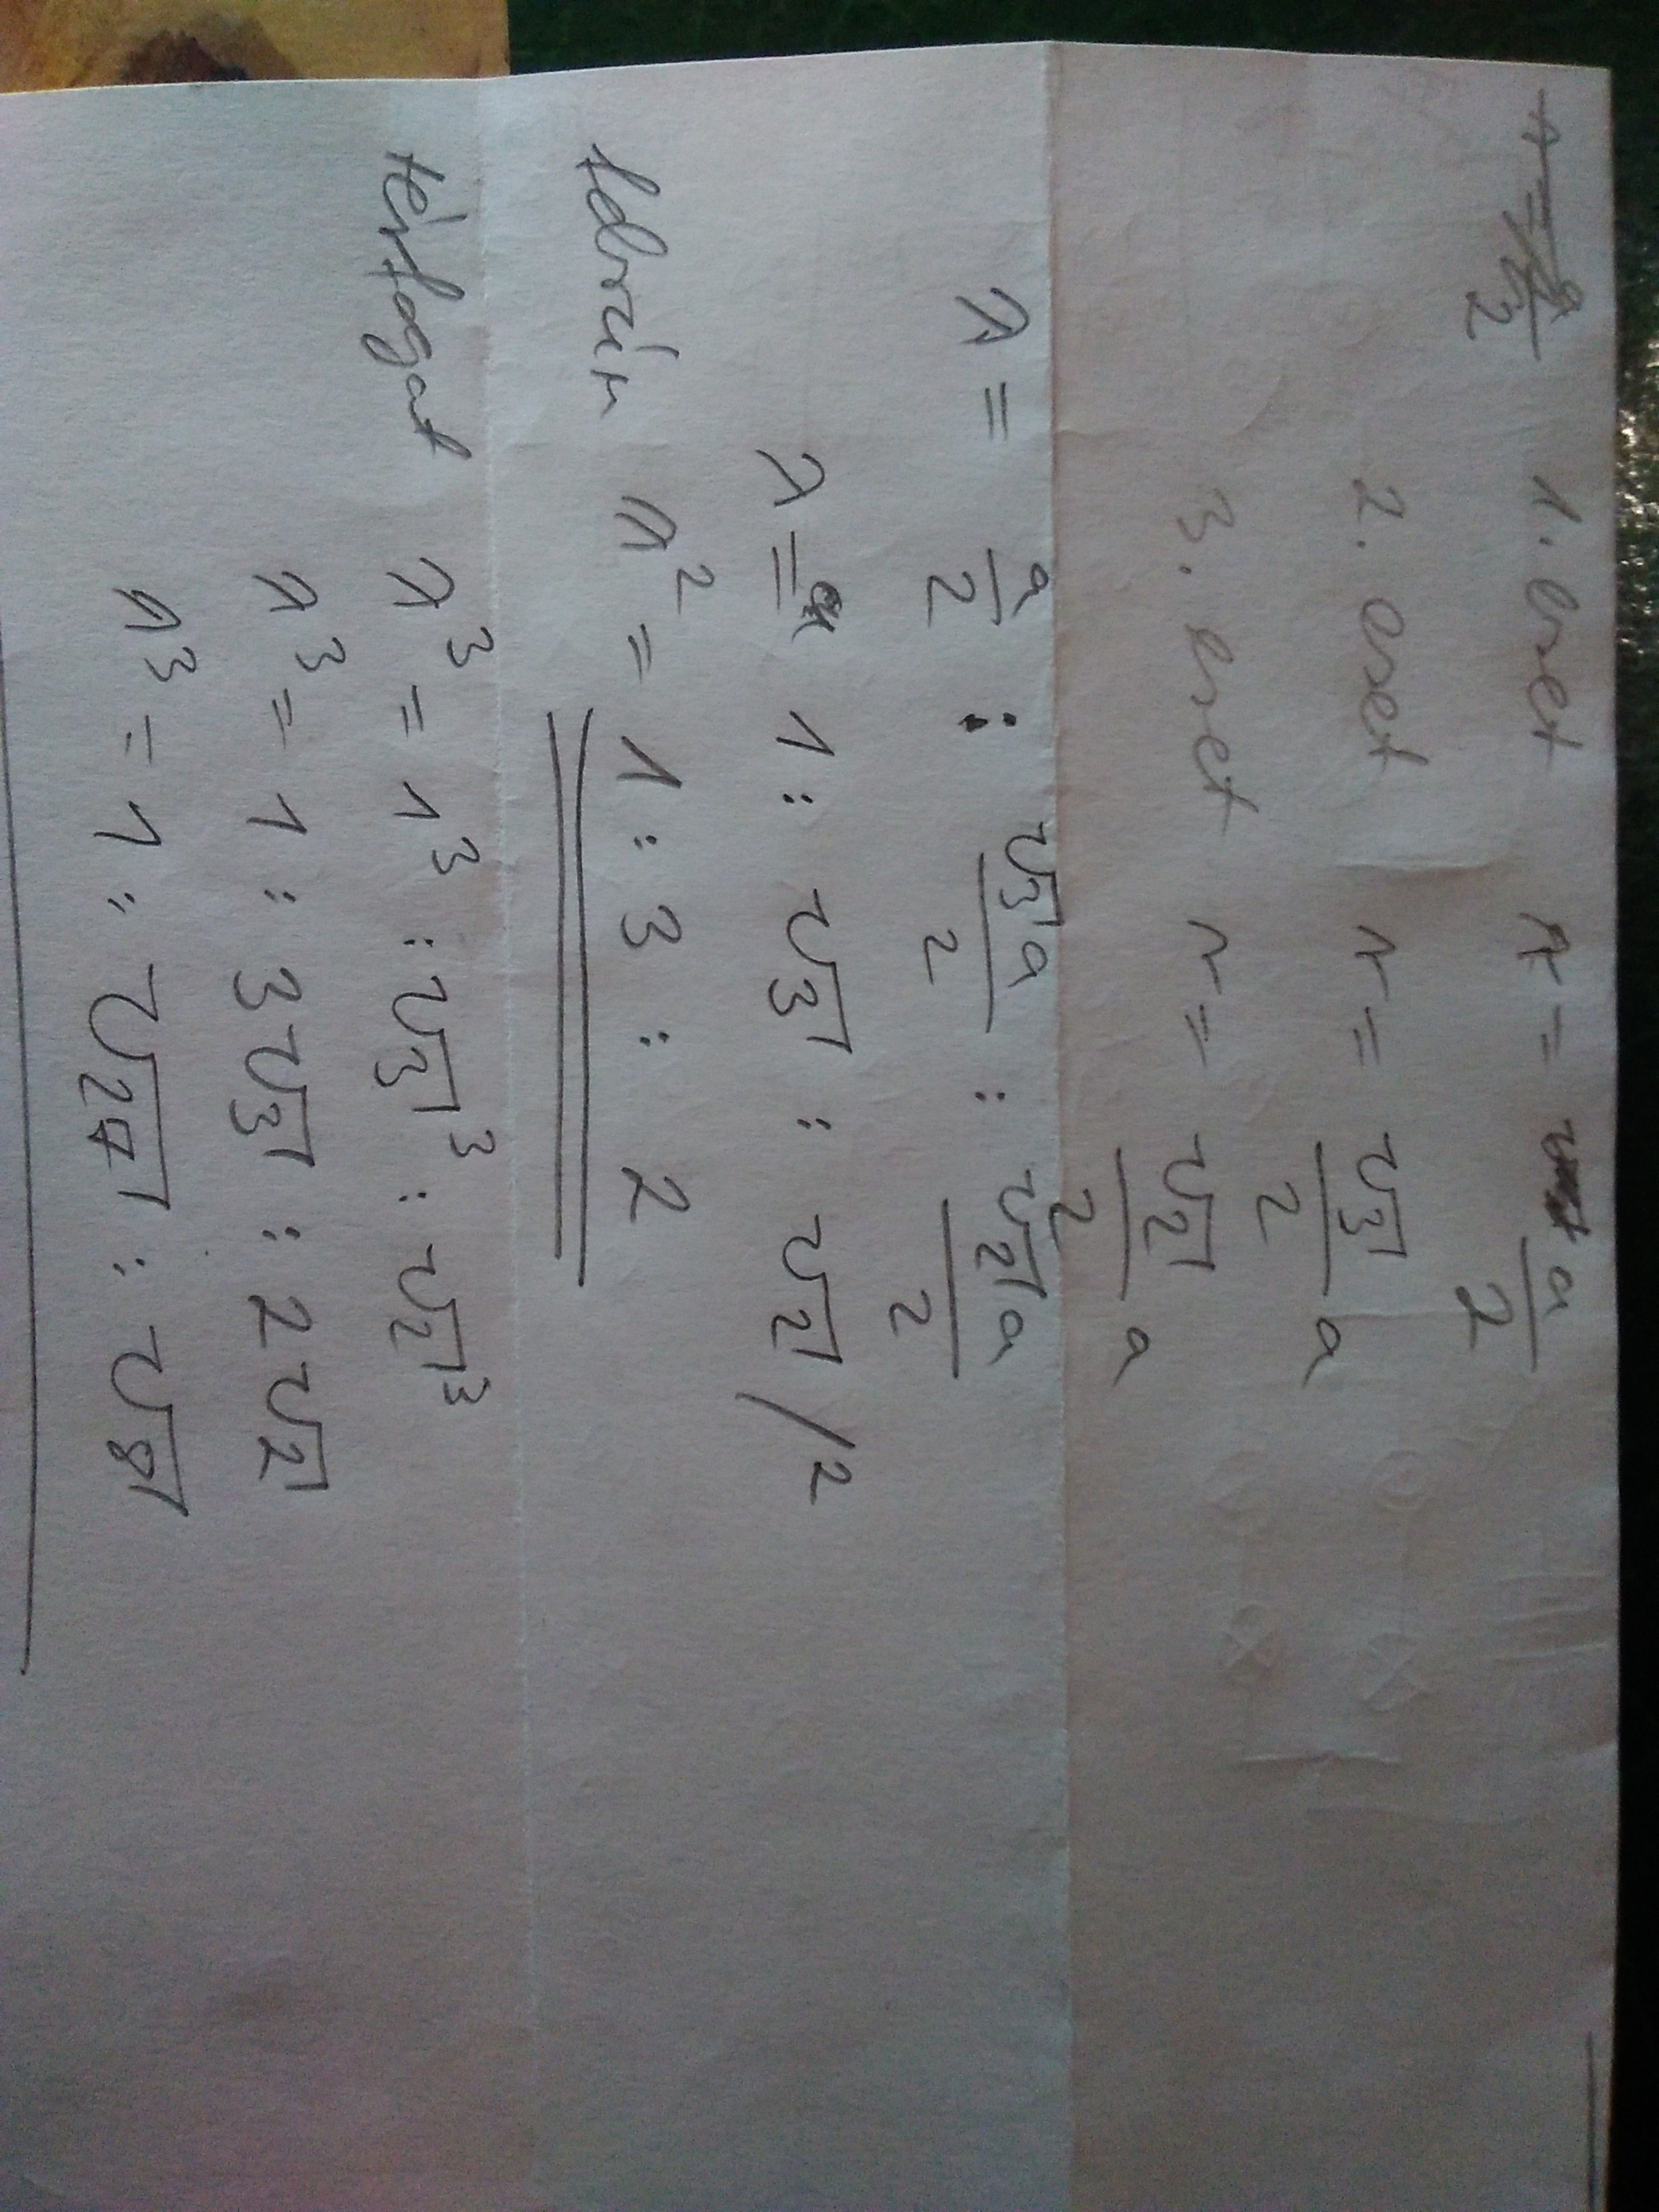 1. eset r = a/2
2. eset r = √3/2 a
3. eset r = √2/2 a
λ = a/2 : √3a/2 : √2a/2
λ = 1 : √3 : √2 /²
felszín λ² = 1 : 3 : 2
térfogat λ³ = 1³ : √3³ : √2³
λ³ = 1 : 3√3 : 2√2
λ³ = 1 : √27 : √8